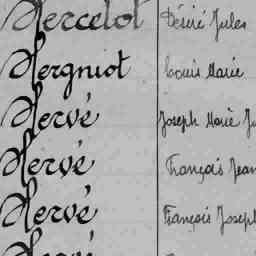 Hercelot Désiré Jules
Hergniot Louis Marie
Hervé Joseph Marie
Hervé François Jean
Hervé François Joseph